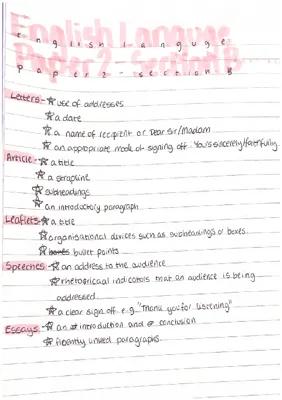 English Language
Paper 2 - Section B
English language
paper 2 - section B
Letters - ☆ use of addresses
☆ a date
☆ a name of recipient or Dear Sir/Madam
☆ an appropriate mode of signing off. Yours sincerely/faithfully.
Article - ☆ a title
☆ a strapline
☆ subheadings
☆ an introductory paragraph
Leaflets - ☆ a title
☆ organisational devices such as subheadings or boxes.
☆ boxes bullet points
Speeches - ☆ an address to the audience
☆ rhetorical indicators that an audience is being
addressed
☆ a clear sign off e.g. "Thank you for listening"
Essays - ☆ an introduction and conclusion
☆ fluently linked paragraphs.